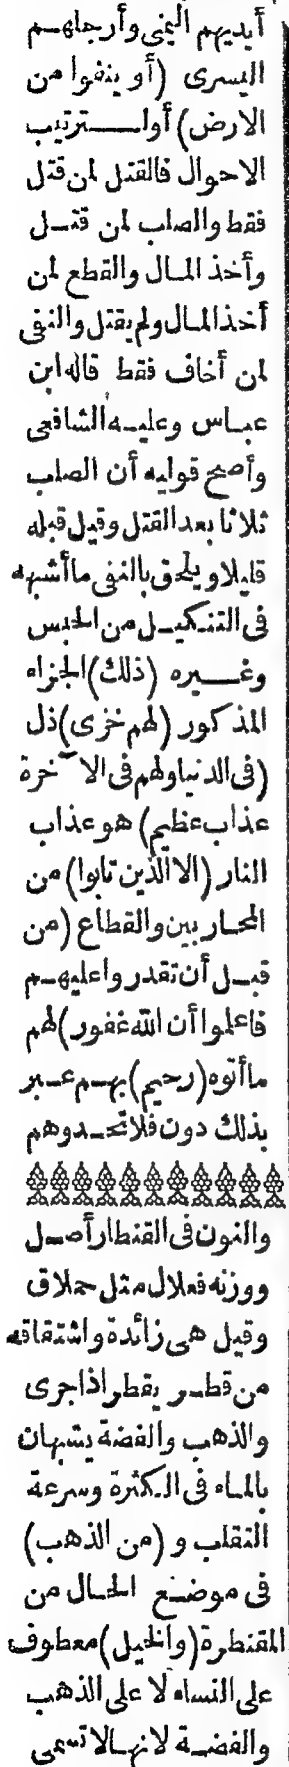 أيديهم اليمنى وأرجلهم
اليسرى (أو ينفوا من
الارض) أو لترتيب
الاحوال فالقتل لمن قتل
فقط والصلب لمن قتل
وأخذ المال والقطع لمن
أخذ المال ولم يقتل والنفى
لمن أخاف فقط قاله ابن
عباس وعليه الشافعى
وأصح قوليه أن الصلب
ثلاثا بعد القتل وقيل قبله
قليلا ويلحق بالنفى ما أشبهه
فى التنكيل من الحبس
وغيره (ذلك) الجزاء
المذكور (لهم خزى) ذل
(فى الدنيا ولهم فى الآخرة
عذاب عظيم) هو عذاب
النار (الا الذين تابوا) من
المحاربين والقطاع (من
قبل أن تقدروا عليهم
فاعلموا أن الله غفور) لهم
ما أتوه (رحيم) بهم عبر
بذلك دون فلا تحدوهم
والنون فى القنطار أصل
ووزنه فعلال مثل حملاق
وقيل هى زائدة واشتقاقه
من قطر يقطر اذا جرى
والذهب والفضة يشبهان
بالماء فى الكثرة وسرعة
التقلب و (من الذهب)
فى موضع الحال من
المقنطرة (والخيل) معطوف
على النساء لا على الذهب
والفضة لانها لا تسمى